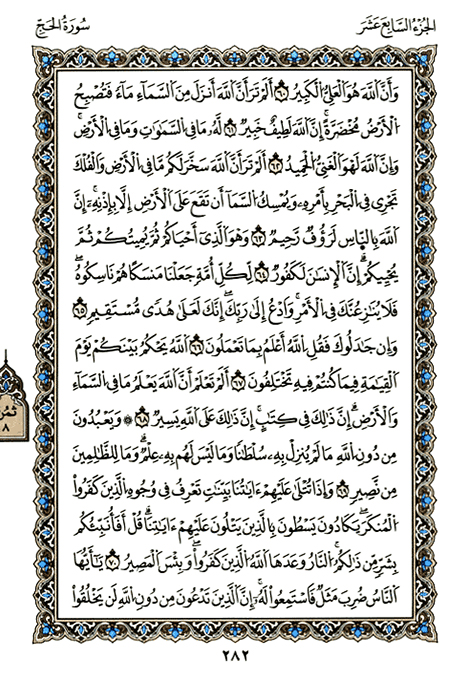 الجزء السابع عشر
سورة الحج
وَأَنَّ ٱللَّهَ هُوَ ٱلْعَلِىُّ ٱلْكَبِيرُ ٦٠ أَلَمْ تَرَ أَنَّ ٱللَّهَ أَنزَلَ مِنَ ٱلسَّمَآءِ مَآءً فَتُصْبِحُ
ٱلْأَرْضُ مُخْضَرَّةً ۚ إِنَّ ٱللَّهَ لَطِيفٌ خَبِيرٌ ٦١ لَّهُۥ مَا فِى ٱلسَّمَٰوَٰتِ وَمَا فِى ٱلْأَرْضِ ۚ
وَإِنَّ ٱللَّهَ لَهُوَ ٱلْغَنِىُّ ٱلْحَمِيدُ ٦٢ أَلَمْ تَرَ أَنَّ ٱللَّهَ سَخَّرَ لَكُم مَّا فِى ٱلْأَرْضِ وَٱلْفُلْكَ
تَجْرِى فِى ٱلْبَحْرِ بِأَمْرِهِۦ وَيُمْسِكُ ٱلسَّمَآ أَن تَقَعَ عَلَى ٱلْأَرْضِ إِلَّا بِإِذْنِهِۦٓ ۚ إِنَّ
ٱللَّهَ بِٱلنَّاسِ لَرَءُوفٌ رَّحِيمٌ ٦٣ وَهُوَ ٱلَّذِىٓ أَحْيَاكُمْ ثُمَّ يُمِيتُكُمْ ثُمَّ
يُحْيِيكُمْ ۗ إِنَّ ٱلْإِنسَٰنَ لَكَفُورٌ ٦٤ لِّكُلِّ أُمَّةٍ جَعَلْنَا مَنسَكًا هُمْ نَاسِكُوهُ ۖ
فَلَا يُنَٰزِعُنَّكَ فِى ٱلْأَمْرِ ۚ وَٱدْعُ إِلَىٰ رَبِّكَ ۖ إِنَّكَ لَعَلَىٰ هُدًى مُّسْتَقِيمٍ ٦٥
وَإِن جَٰدَلُوكَ فَقُلِ ٱللَّهُ أَعْلَمُ بِمَا تَعْمَلُونَ ٦٦ ٱللَّهُ يَحْكُمُ بَيْنَكُمْ يَوْمَ
ٱلْقِيَٰمَةِ فِيمَا كُنتُمْ فِيهِ تَخْتَلِفُونَ ٦٧ أَلَمْ تَعْلَمْ أَنَّ ٱللَّهَ يَعْلَمُ مَا فِى ٱلسَّمَآءِ
وَٱلْأَرْضِ ۗ إِنَّ ذَٰلِكَ فِى كِتَٰبٍ ۚ إِنَّ ذَٰلِكَ عَلَى ٱللَّهِ يَسِيرٌ ٦٨ وَيَعْبُدُونَ
مِن دُونِ ٱللَّهِ مَا لَمْ يُنَزِّلْ بِهِۦ سُلْطَٰنًا وَمَا لَيْسَ لَهُم بِهِۦ عِلْمٌ ۗ وَمَا لِلظَّٰلِمِينَ
مِن نَّصِيرٍ ٦٩ وَإِذَا تُتْلَىٰ عَلَيْهِمْ ءَايَٰتُنَا بَيِّنَٰتٍ تَعْرِفُ فِى وُجُوهِ ٱلَّذِينَ كَفَرُوا۟
ٱلْمُنكَرَ ۖ يَكَادُونَ يَسْطُونَ بِٱلَّذِينَ يَتْلُونَ عَلَيْهِمْ ءَايَٰتِنَا ۗ قُلْ أَفَأُنَبِّئُكُم
بِشَرٍّ مِّن ذَٰلِكُمُ ۚ ٱلنَّارُ وَعَدَهَا ٱللَّهُ ٱلَّذِينَ كَفَرُوا۟ ۖ وَبِئْسَ ٱلْمَصِيرُ ٧٠ يَٰٓأَيُّهَا
ٱلنَّاسُ ضُرِبَ مَثَلٌ فَٱسْتَمِعُوا۟ لَهُۥٓ ۚ إِنَّ ٱلَّذِينَ تَدْعُونَ مِن دُونِ ٱللَّهِ لَن يَخْلُقُوا۟
ثمن
٨
٢٨٢